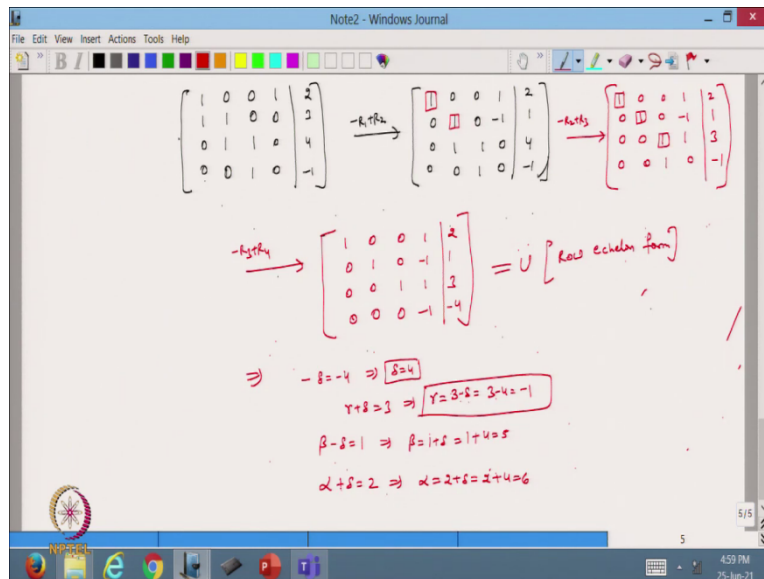 Note2 - Windows Journal
File Edit View Insert Actions Tools Help
1 0 0 1 | 2
1 1 0 0 | 3
0 1 1 0 | 4
0 0 1 0 | -1
-R1+R2 →
1 0 0 1 | 2
0 1 0 -1 | 1
0 1 1 0 | 4
0 0 1 0 | -1
-R2+R3 →
1 0 0 1 | 2
0 1 0 -1 | 1
0 0 1 1 | 3
0 0 1 0 | -1
-R3+R4 →
1 0 0 1 | 2
0 1 0 -1 | 1
0 0 1 1 | 3
0 0 0 -1 | -4
= U [Row echelon form]
⇒ -δ=-4 ⇒ δ=4
γ+δ=3 ⇒ γ=3-δ=3-4=-1
β-δ=1 ⇒ β=1+δ=1+4=5
α+δ=2 ⇒ α=2+δ=2+4=6
5/5
5
NPTEL
4:59 PM
25-Jun-21